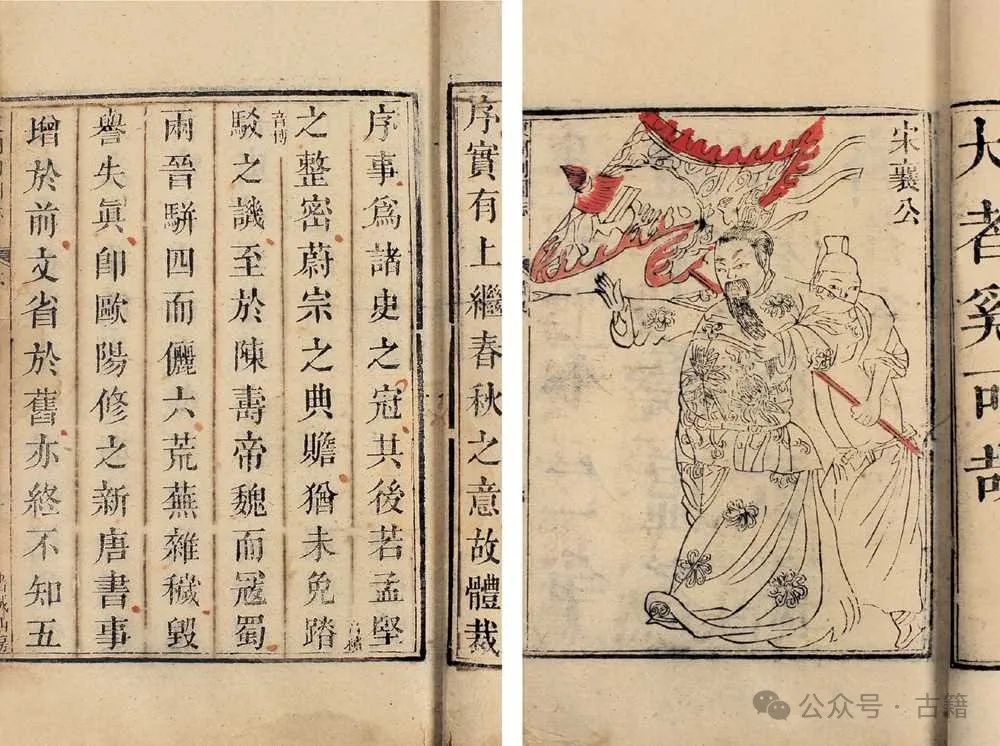 序實有上繼春秋之意故體裁
序事爲諸史之冠其後若孟堅
之整密蔚宗之典贍猶未免踳
駁之譏至於陳壽帝魏而冦蜀
兩晉駢四而儷六荒蕪雜穢毀
譽失眞卽歐陽修之新唐書事
增於前文省於舊亦終不知五
大者奚可哉
宋襄公
公众号 · 古籍